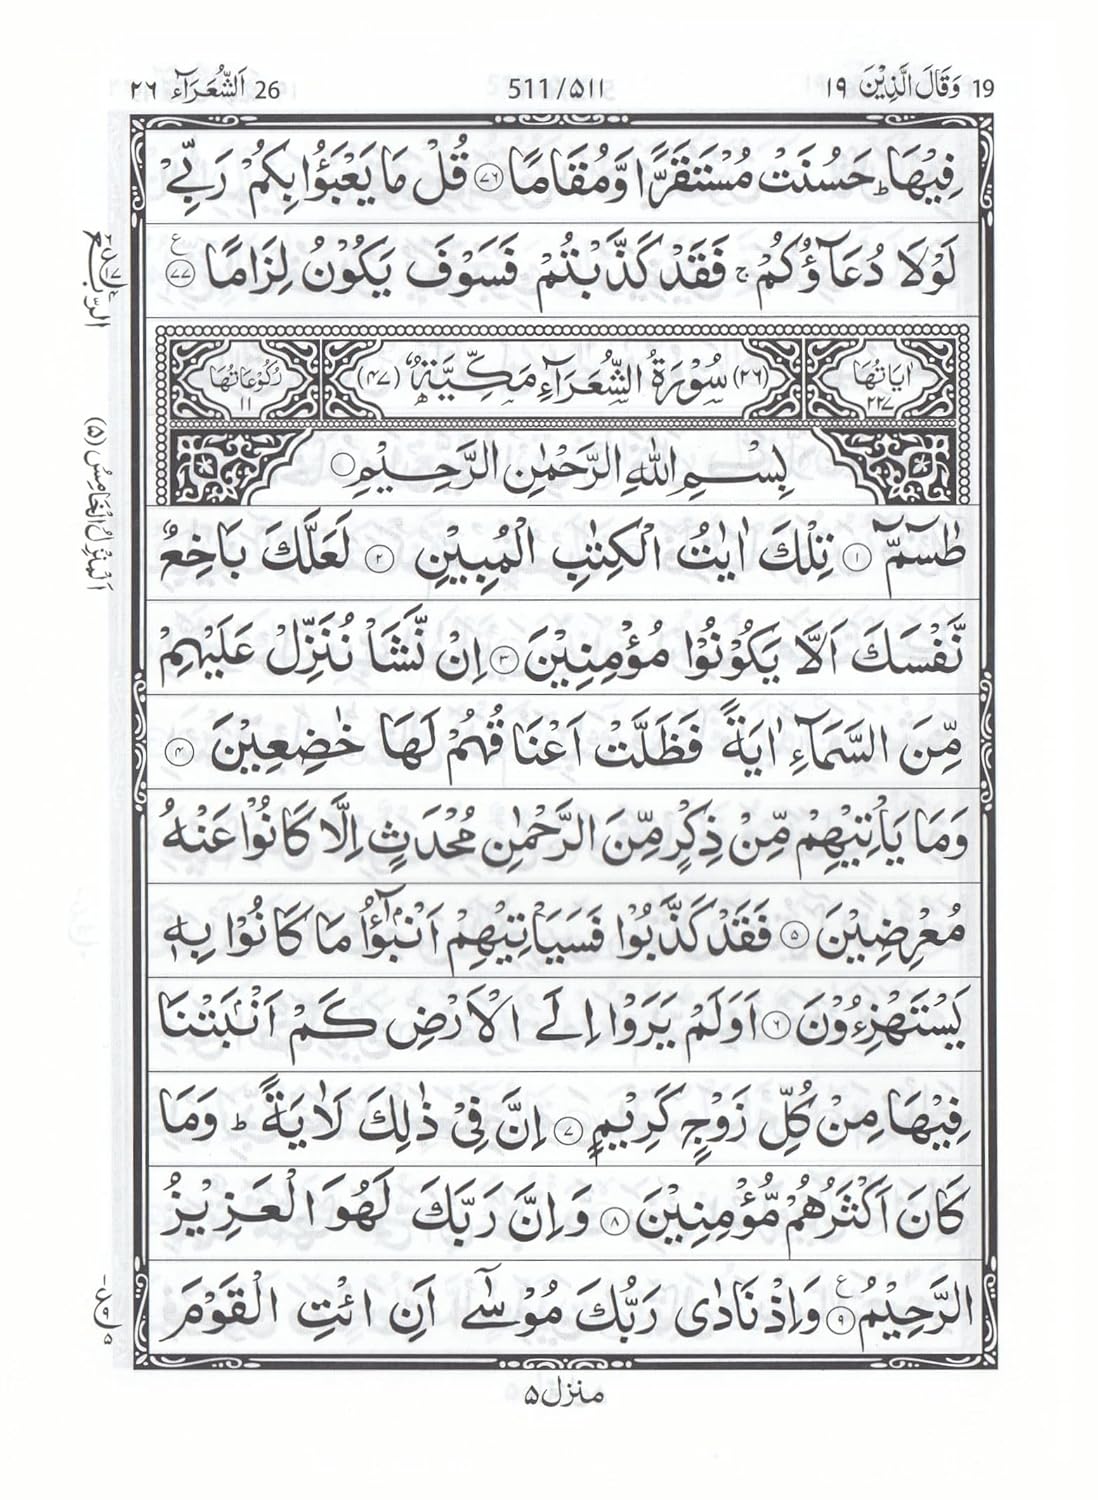 19 وَقَالَ الَّذِيْنَ ١٩
511/۵١١
26 اَلشُّعَرَآء ٢٦
فِيْهَا ؕ حَسُنَتْ مُسْتَقَرًّا وَّمُقَامًا ﴿۷۶﴾ قُلْ مَا يَعْبَؤُا بِكُمْ رَبِّيْ
لَوْلَا دُعَآؤُكُمْ ۚ فَقَدْ كَذَّبْتُمْ فَسَوْفَ يَكُوْنُ لِزَامًا ﴿۷۷﴾ ع
الرّبع
اٰيَاتُهَا ٢٢٧
(٢٦) سُوْرَةُ الشُّعَرَآءِ مَكِّيَّةٌ (۴۷)
رُكُوْعَاتُهَا ١١
بِسْمِ اللّٰهِ الرَّحْمٰنِ الرَّحِيْمِ
اَلْمَنْزِلُ الْخَامِسُ (۵)
طٰسٓمّٓ ﴿۱﴾ تِلْكَ اٰيٰتُ الْكِتٰبِ الْمُبِيْنِ ﴿۲﴾ لَعَلَّكَ بَاخِعٌ
نَّفْسَكَ اَلَّا يَكُوْنُوْا مُؤْمِنِيْنَ ﴿۳﴾ اِنْ نَّشَاْ نُنَزِّلْ عَلَيْهِمْ
مِّنَ السَّمَآءِ اٰيَةً فَظَلَّتْ اَعْنَاقُهُمْ لَهَا خٰضِعِيْنَ ﴿۴﴾
وَمَا يَاْتِيْهِمْ مِّنْ ذِكْرٍ مِّنَ الرَّحْمٰنِ مُحْدَثٍ اِلَّا كَانُوْا عَنْهُ
مُعْرِضِيْنَ ﴿۵﴾ فَقَدْ كَذَّبُوْا فَسَيَاْتِيْهِمْ اَنْۢبٰٓؤُا مَا كَانُوْا بِهٖ
يَسْتَهْزِءُوْنَ ﴿۶﴾ اَوَلَمْ يَرَوْا اِلَى الْاَرْضِ كَمْ اَنْۢبَتْنَا
فِيْهَا مِنْ كُلِّ زَوْجٍ كَرِيْمٍ ﴿۷﴾ اِنَّ فِيْ ذٰلِكَ لَاٰيَةً ؕ وَمَا
كَانَ اَكْثَرُهُمْ مُّؤْمِنِيْنَ ﴿۸﴾ وَاِنَّ رَبَّكَ لَهُوَ الْعَزِيْزُ
الرَّحِيْمُ ﴿۹﴾ ع وَاِذْ نَادٰى رَبُّكَ مُوْسٰٓى اَنِ ائْتِ الْقَوْمَ
منزل ۵